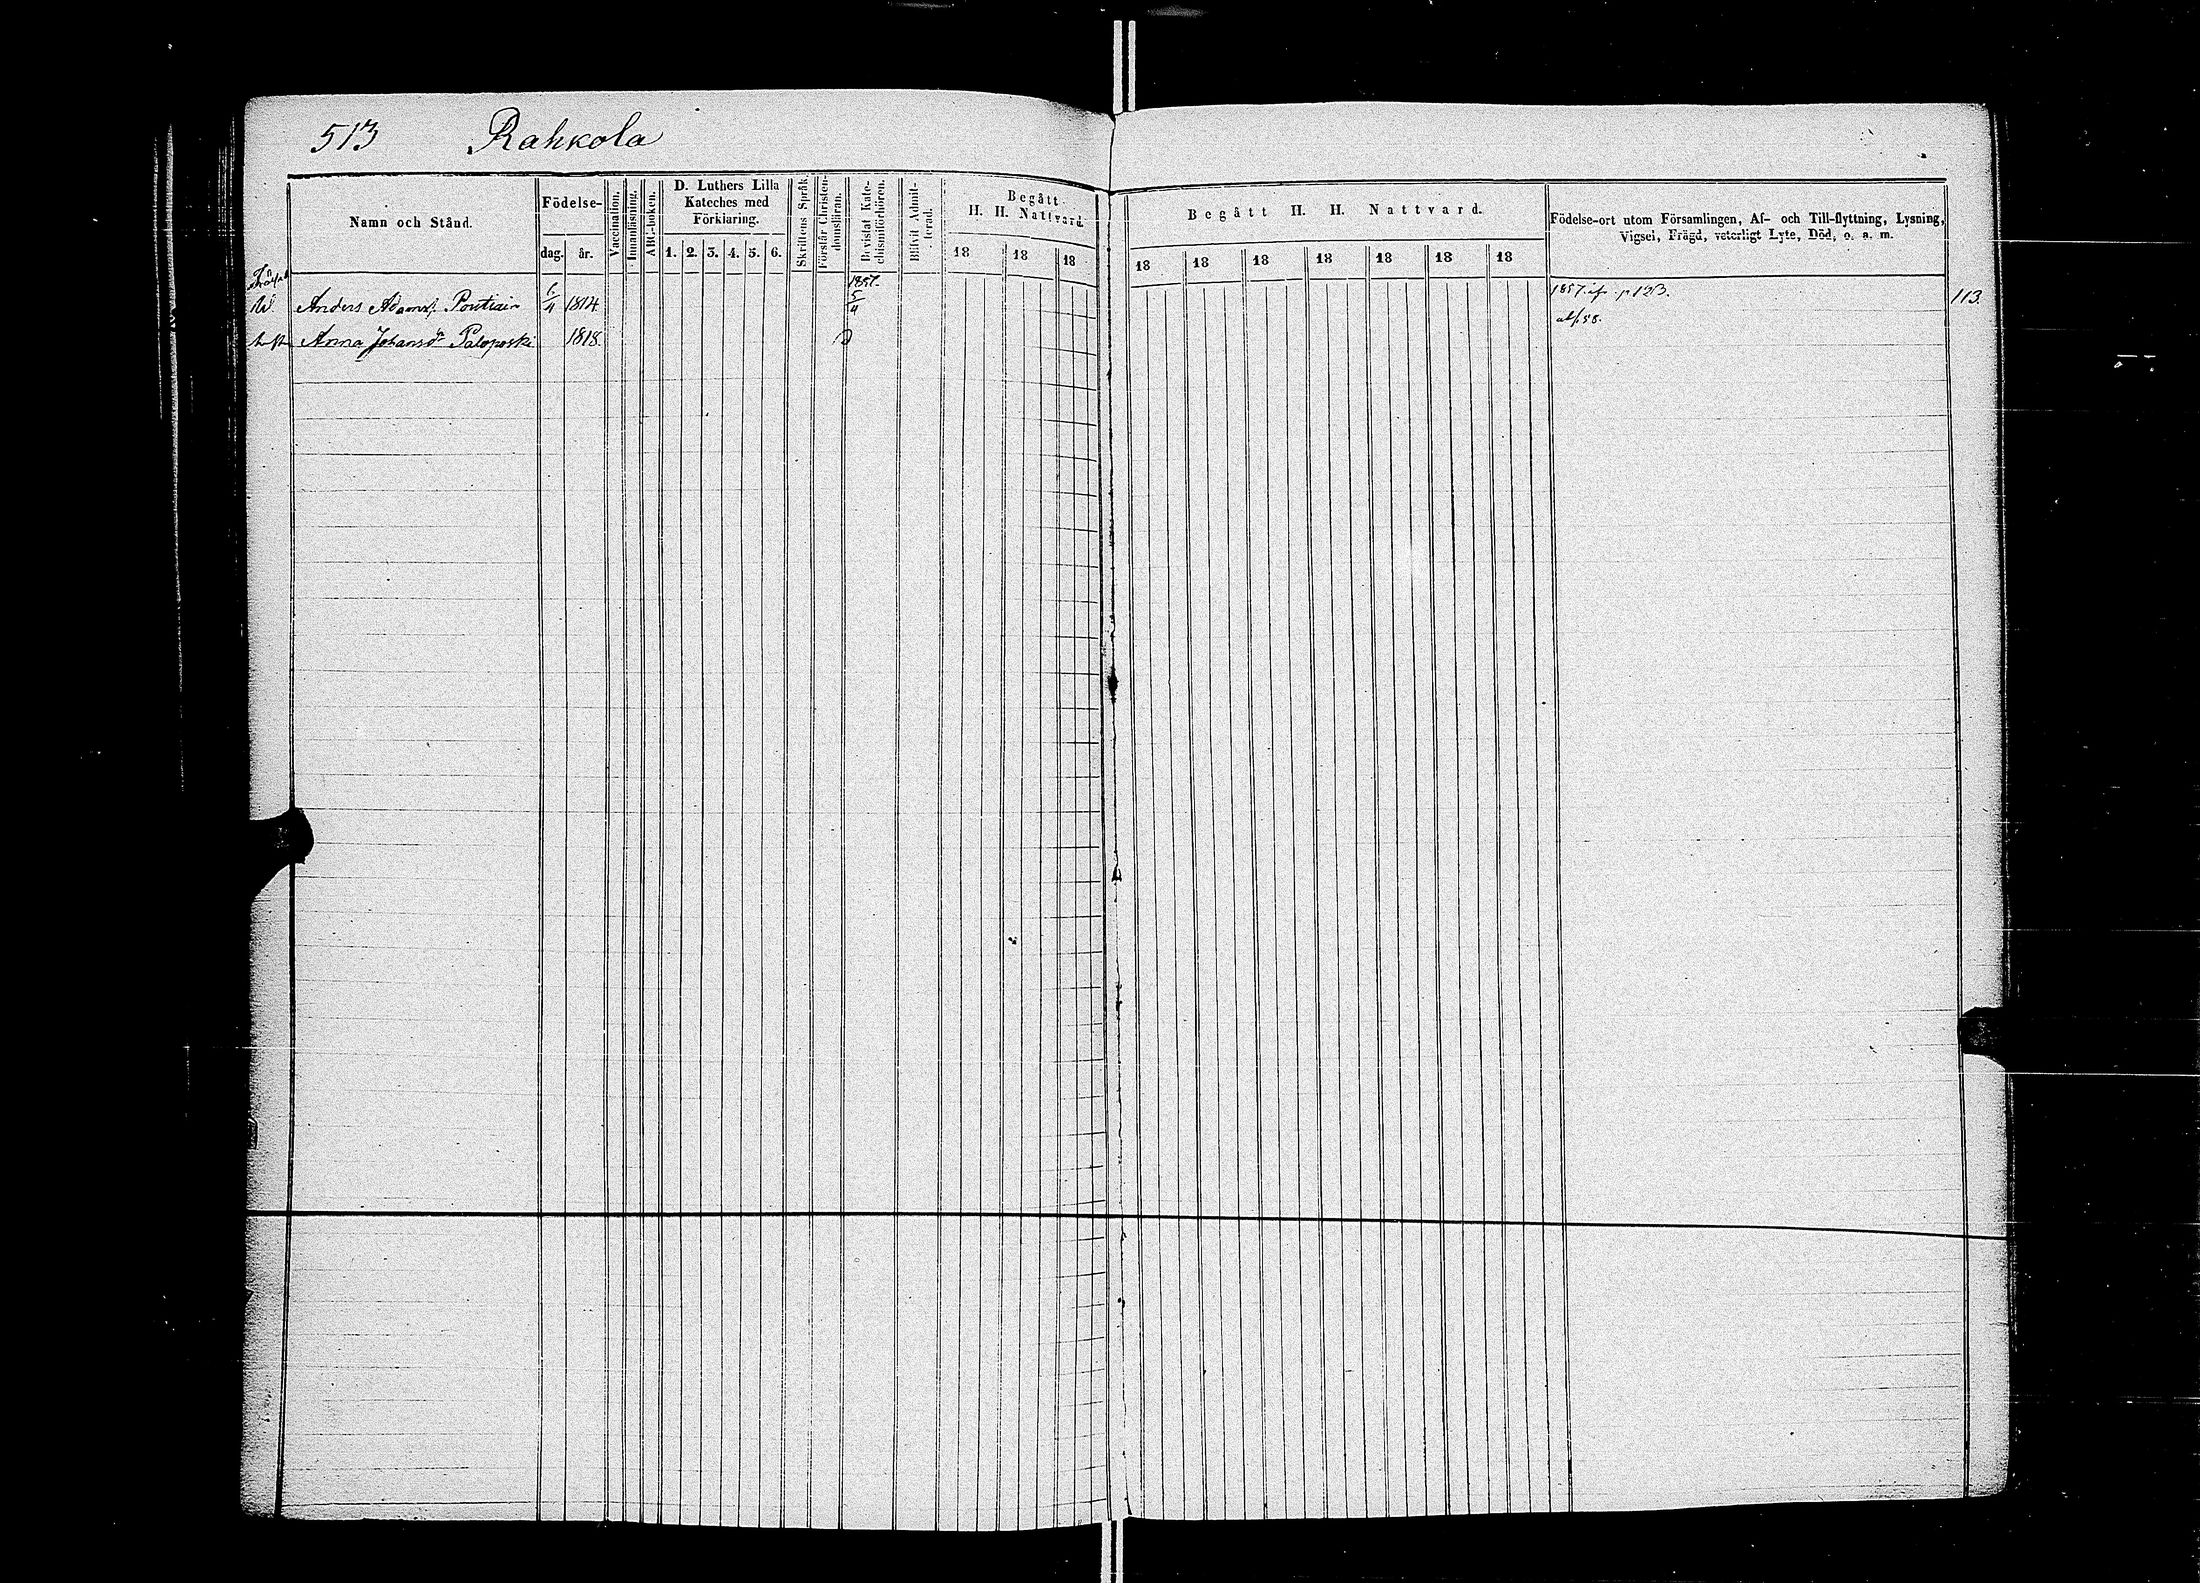 513 Rahkola
Namn och Stånd.
Födelse-
dag. år.
Vaccination.
Innanläsning.
ABC-boken.
D. Luthers Lilla
Kateches med
Förklaring.
1. 2. 3. 4. 5. 6.
Skriftens Språk.
Förstår Christen-
domsläran.
Bevistat Kate-
chismiförhören.
Blifvit Admit-
terad.
Begått
H. H. Nattvard.
18 18 18
Begått H. H. Nattvard.
18 18 18 18 18 18 18
Födelse-ort utom Församlingen, Af- och Till-flyttning, Lysning,
Vigsel, Frägd, veterligt Lyte, Död, o. a. m.
1857.
Anders Adamsf. Pontiain 6/4 1814. 5/4 1857. p 123. 113.
Anna Johansdr Paloposki 1818.
58.